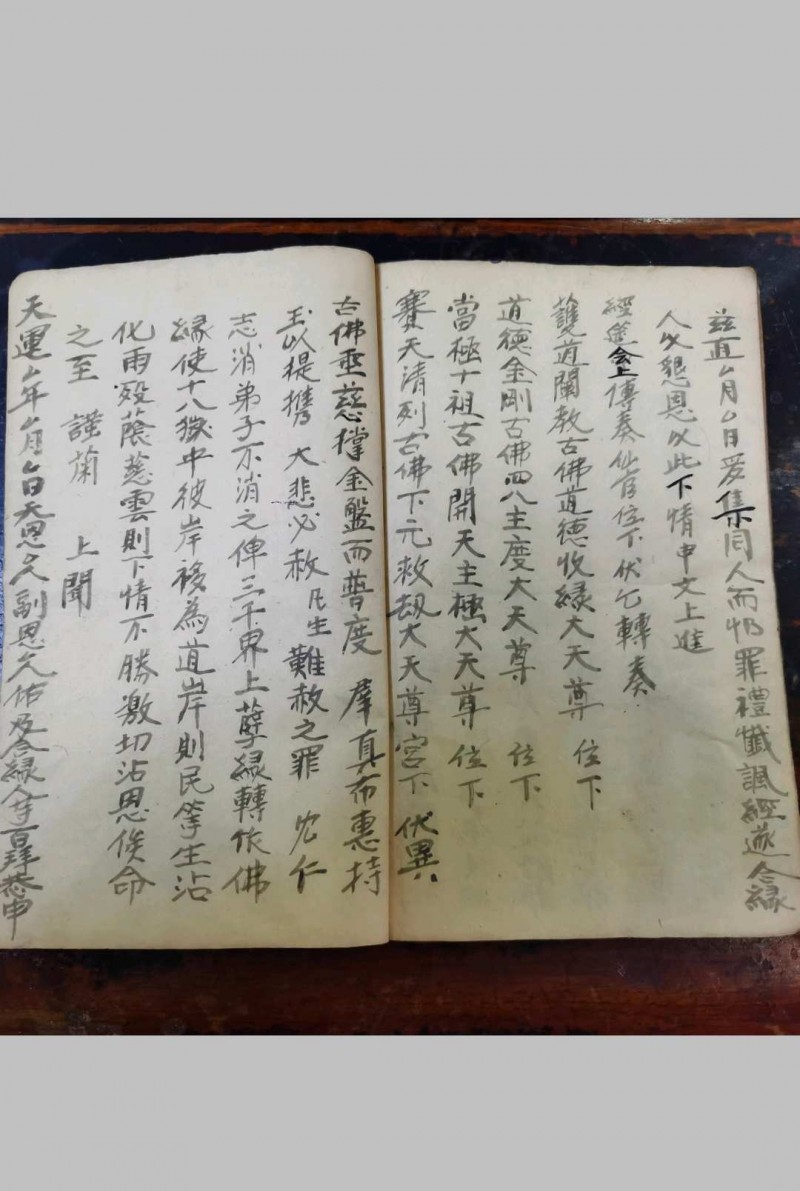 茲直厶月厶日爰集同人而悔罪禮懺諷經遊合緣
人以懇恩以此下情申文上進
經筵會上傳奏仙官位下伏乞轉奏
護道闡教古佛道德收緣大天尊 位下
道德金剛古佛四八主度大天尊 位下
當極十祖古佛開天主極大天尊 位下
賽天清列古佛下元救劫大天尊宮下 伏異
古佛垂慈撑金盤而普度 羣真布惠持
玉以提携 大悲必赦凡生難赦之罪 仁
志消弟子不消之俾三千界上孽緣轉依佛
緣使十八獄中彼岸移為道岸則民等生沾
化雨殁蔭慈雲則下情不勝激切沾恩俟命
之至 謹蘭 上聞
天運厶年厶月厶日天恩厶副恩厶佑及合緣人等百拜恭申